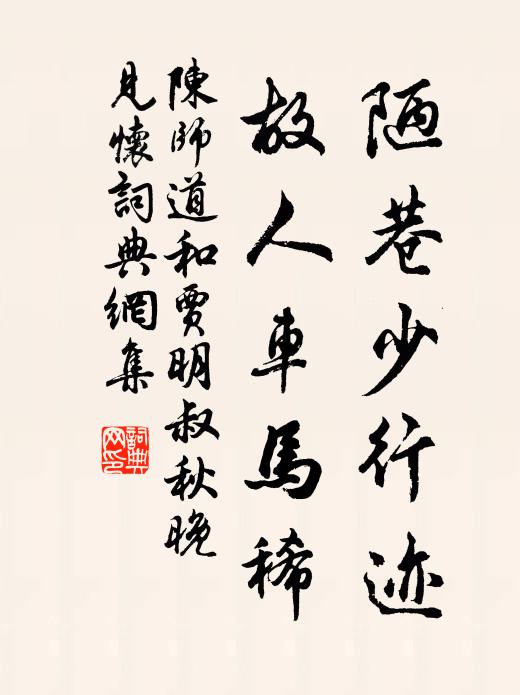 陋巷少行迹
故人車馬稀
陳師道和賈明叔秋晚
見懷詞典網集
詞典
网印